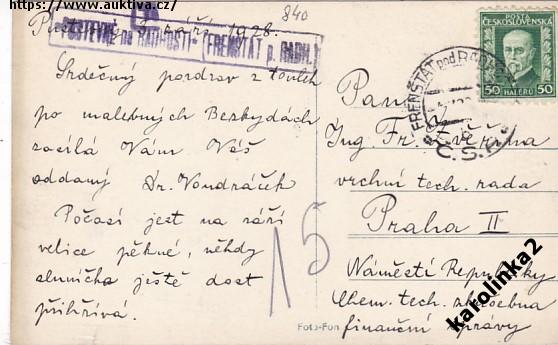 https://www.auktiva.cz/
840
září 1928.
na RADHOŠTI - FRENŠTÁT p. RADH.
Srdečný pozdrav z toulek
po malebných Beskydách
zasílá Vám Váš
oddaný Dr. Vondráček
Počasí jest na září
velice pěkné, někdy
sluníčko ještě dost
přihřívá.
15
POSTA
ČESKOSLOVENSKÁ
50 HALÉŘŮ 50
FRENŠTÁT pod RADHOŠTĚM
Č.S.P.
Pan
Ing. Fr. Zvěřina
vrchní tech. rada
Praha II
Náměstí Republiky
Chem. tech. zkušebna
finanční správy
Foto-Fon
karolinka2